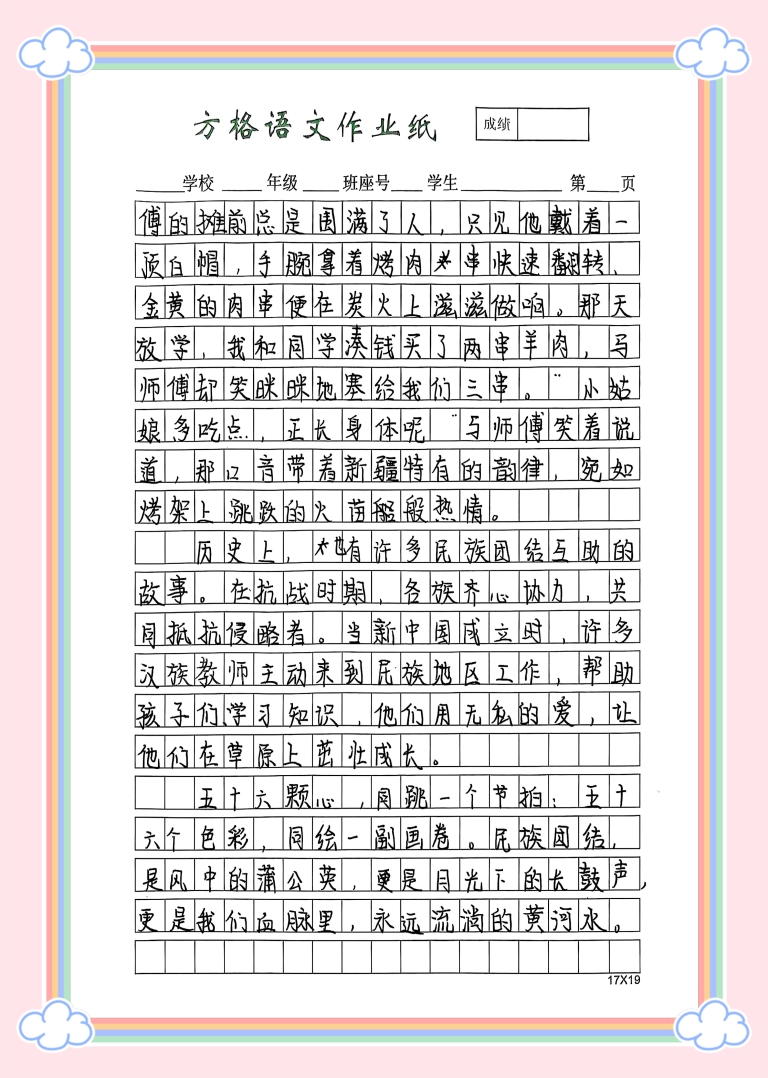 方格语文作业纸
成绩
学校 年级 班座号 学生 第 页
傅的摊前总是围满了人，只见他戴着一
顶白帽，手腕拿着烤肉串快速翻转、
金黄的肉串便在炭火上滋滋做响。那天
放学，我和同学凑钱买了两串羊肉，马
师傅却笑眯眯地塞给我们三串。“小姑
娘多吃点，正长身体呢”马师傅笑着说
道，那口音带着新疆特有的韵律，宛如
烤架上跳跃的火苗般热情。
历史上，也有许多民族团结互助的
故事。在抗战时期，各族齐心协力，共
同抵抗侵略者。当新中国成立时，许多
汉族教师主动来到民族地区工作，帮助
孩子们学习知识，他们用无私的爱，让
他们在草原上茁壮成长。
五十六颗心，同跳一个节拍；五十
六个色彩，同绘一副画卷。民族团结，
是风中的蒲公英，更是月光下的长鼓声，
更是我们血脉里，永远流淌的黄河水。
17X19